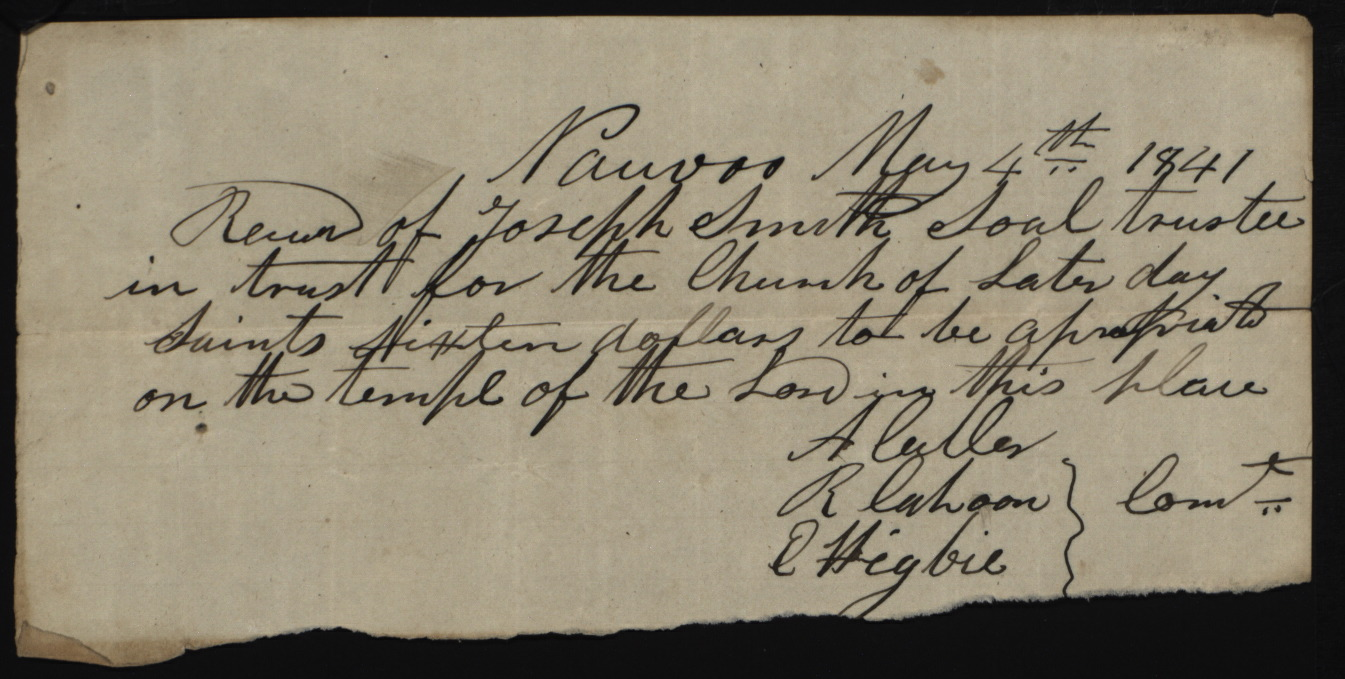 Nauvoo May 4th 1841
Receivd of Joseph Smith Soal trustee
in trust for the Church of Later day
Saints Sixteen dollars to be apropriate
on the templ of the Lord in this place
A Cutler
R Cahoon
E Higbie
Comt